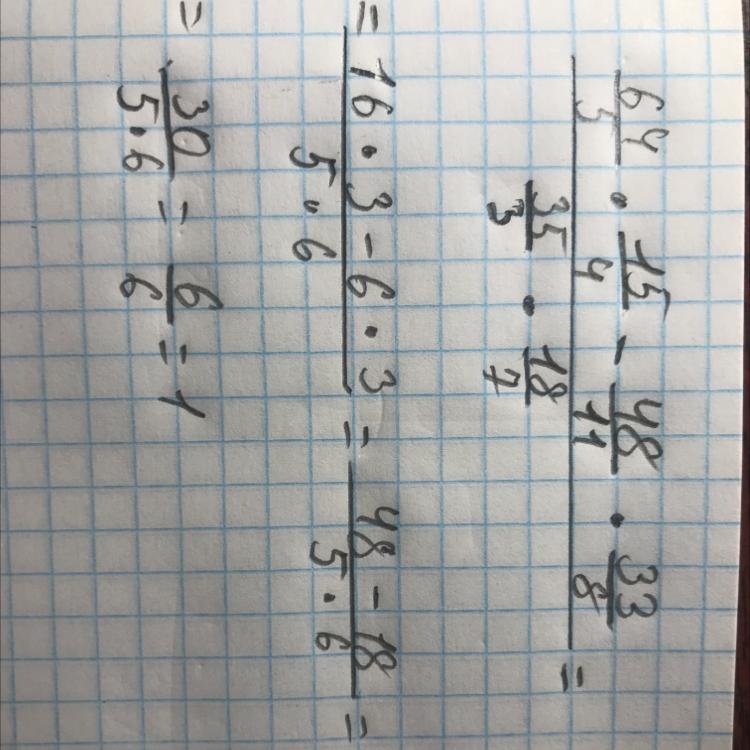 64/5 · 15/4 - 48/11 · 33/8 =
35/3 · 18/7
= 16 · 3 - 6 · 3 = 48 - 18 =
5 · 6 5 · 6
= 30/5·6 = 6/6 = 1